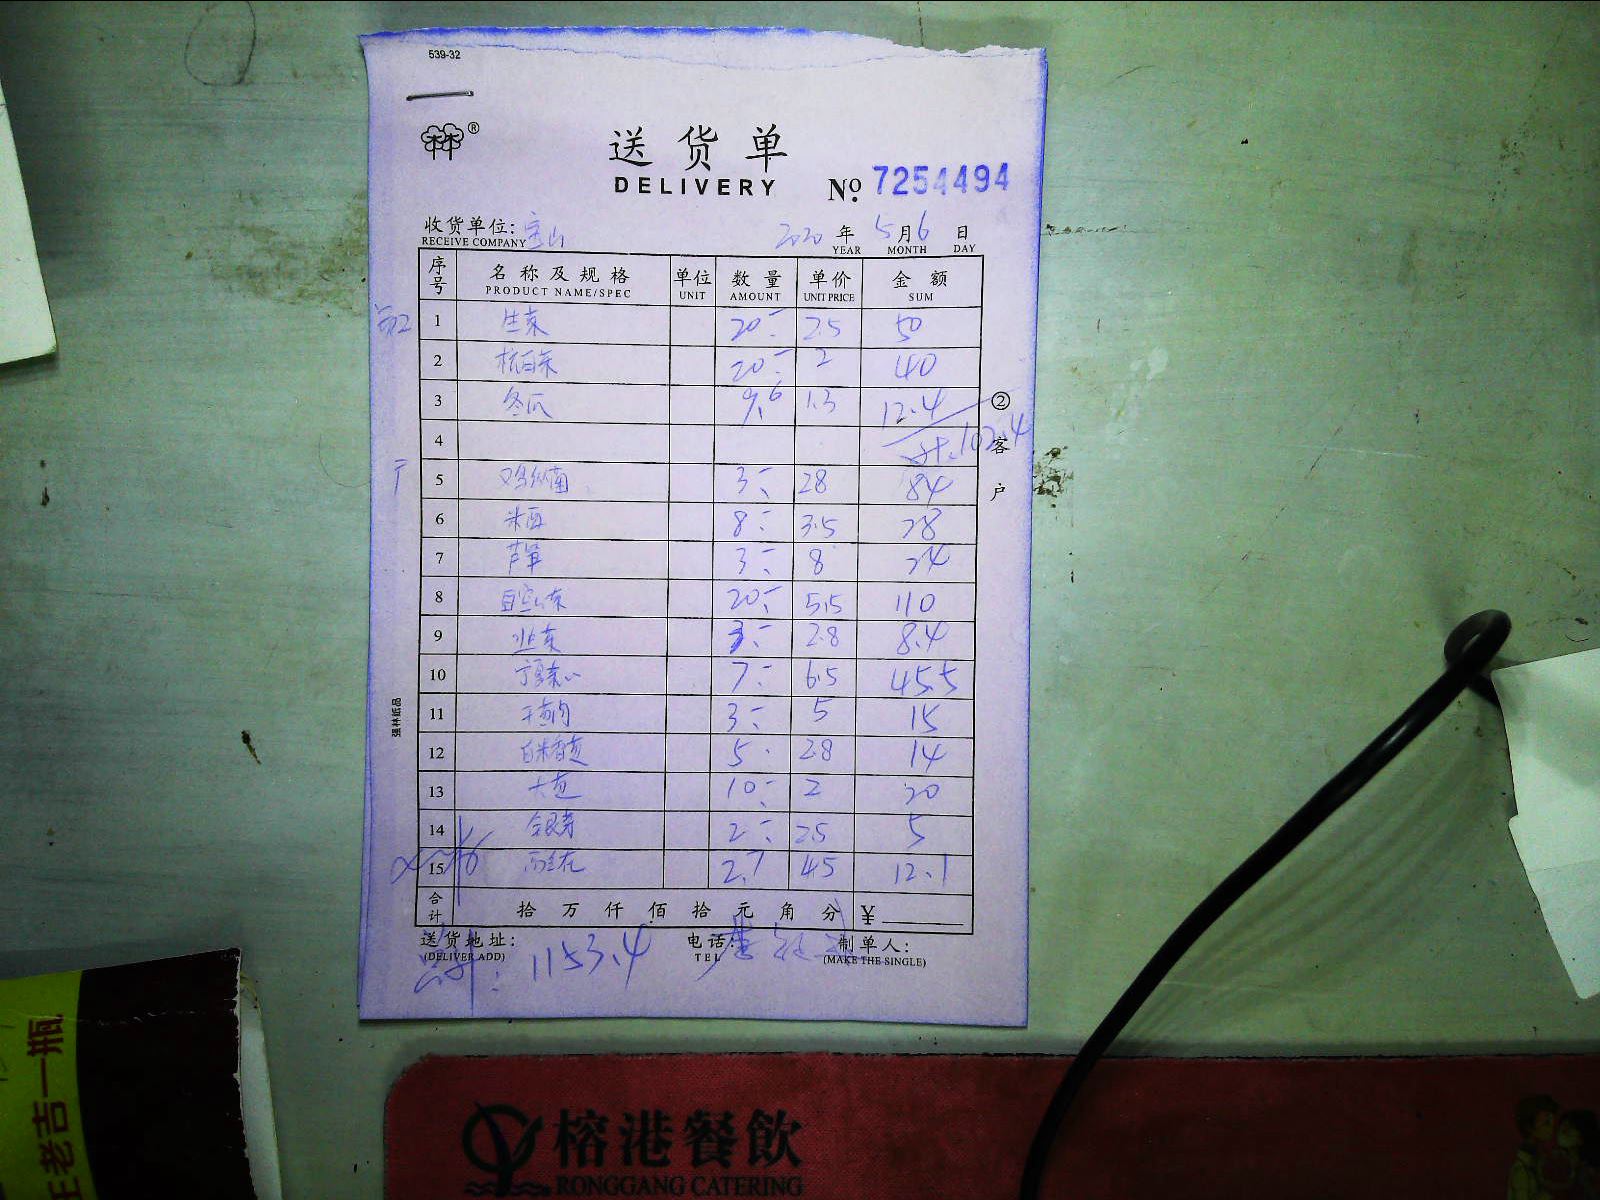 539-32
®
送货单
DELIVERY
No. 7254494
收货单位: 宝山 2020年5月6日
RECEIVE COMPANY YEAR MONTH DAY
序号 名称及规格 单位 数量 单价 金额
PRODUCT NAME/SPEC UNIT AMOUNT UNIT PRICE SUM
1 生菜 20 2.5 50
2 杭白菜 20 2 40
3 冬瓜 9.6 1.3 12.4
4 计.102.4
5 鸡枞菌 3 28 84
6 米豆 8 3.5 28
7 芦笋 3 8 24
8 20 5.5 110
9 韭菜 3 2.8 8.4
10 宁夏菜心 7 6.5 45.5
11 3 5 15
12 白米香葱 5 2.8 14
13 大葱 10 2 20
14 2 2.5 5
15 2.7 4.5 12.1
合计 拾 万 仟 佰 拾 元 角 分 ¥
② 客户
强林纸品
送货地址: 电话: 制单人:
(DELIVER ADD) TEL (MAKE THE SINGLE)
1153.4
王老吉一瓶
榕港餐飲
RONGGANG CATERING